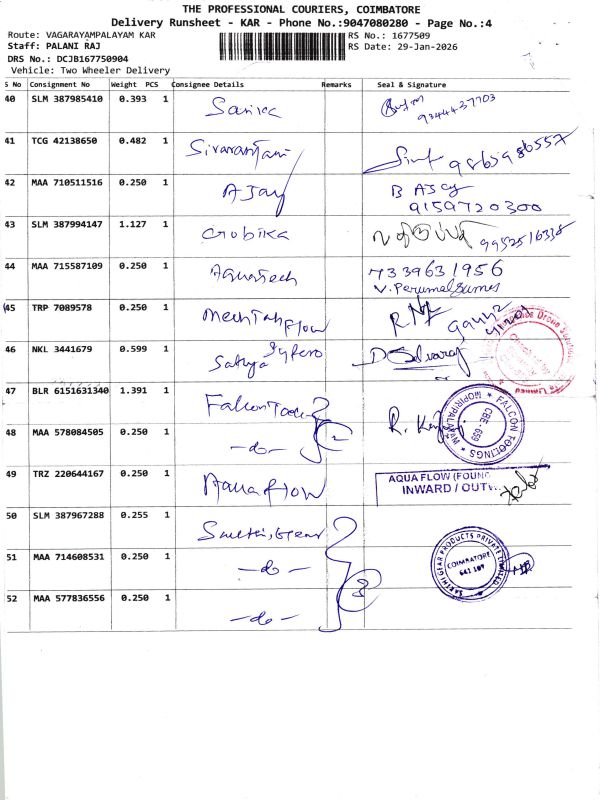 THE PROFESSIONAL COURIERS, COIMBATORE
Delivery Runsheet - KAR - Phone No.:9047080280 - Page No.:4
Route: VAGARAYAMPALAYAM KAR RS No.: 1677509
Staff: PALANI RAJ RS Date: 29-Jan-2026
DRS No.: DCJB167750904
Vehicle: Two Wheeler Delivery
S No Consignment No Weight PCS Consignee Details Remarks Seal & Signature
40 SLM 387985410 0.393 1
41 TCG 42138650 0.482 1 9865986557
42 MAA 710511516 0.250 1 AJay B AJay
9159720300
43 SLM 387994147 1.127 1 Gobika 9952516338
44 MAA 715587109 0.250 1 AquaTech 7339631956
V. Perumalsamy
45 TRP 7089578 0.250 1
46 NKL 3441679 0.599 1 Sathya
47 BLR 6151631340 1.391 1 Falcon FALCON TOOLINGS
CBE-659
48 MAA 578084505 0.250 1 -do- 2
49 TRZ 220644167 0.250 1 Aquaflow AQUA FLOW (FOUND
INWARD / OUTW
50 SLM 387967288 0.255 1
51 MAA 714608531 0.250 1 -do- 3 SAKTHI GEAR PRODUCTS PRIVATE LIMITED
COIMBATORE
641 107
52 MAA 577836556 0.250 1 -do-